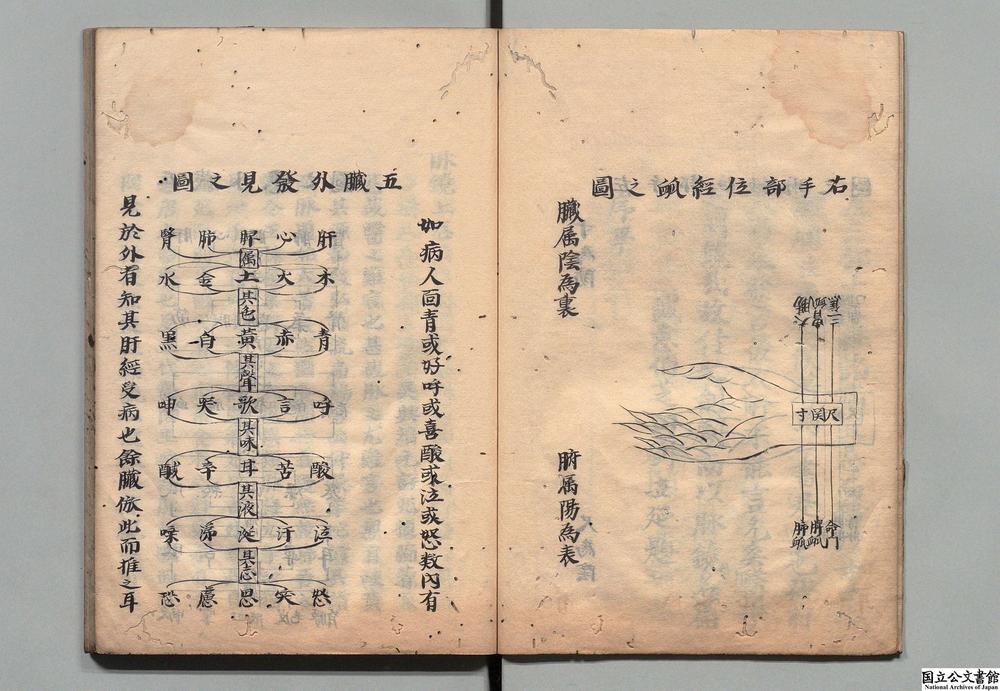 右手部位經脈之圖
臟属陰為裏
腑属陽為表
大腸 胃脈 三焦
寸関尺
肺脈 脾脈 命門
如病人面青或好呼或喜酸或泣或怒数內有
五臓外發見之圖
肝心脾肺腎
属
木火土金水
其色
青赤黃白黒
其聲
呼言歌哭呻
其味
酸苦耳辛鹹
其液
泣汗涎涕唾
其志
怒笑思慮恐
見於外者知其肝經受病也餘臓倣此而推之耳
国立公文書館
National Archives of Japan